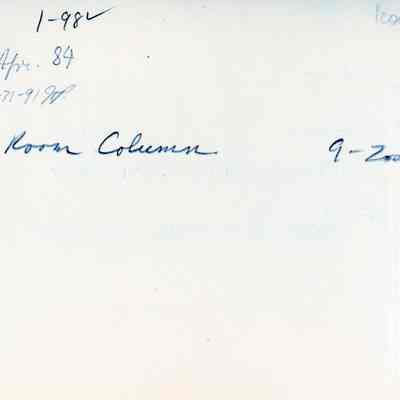 1-98✓
Apr. 84
-71-91
Room Column 9-Zoo